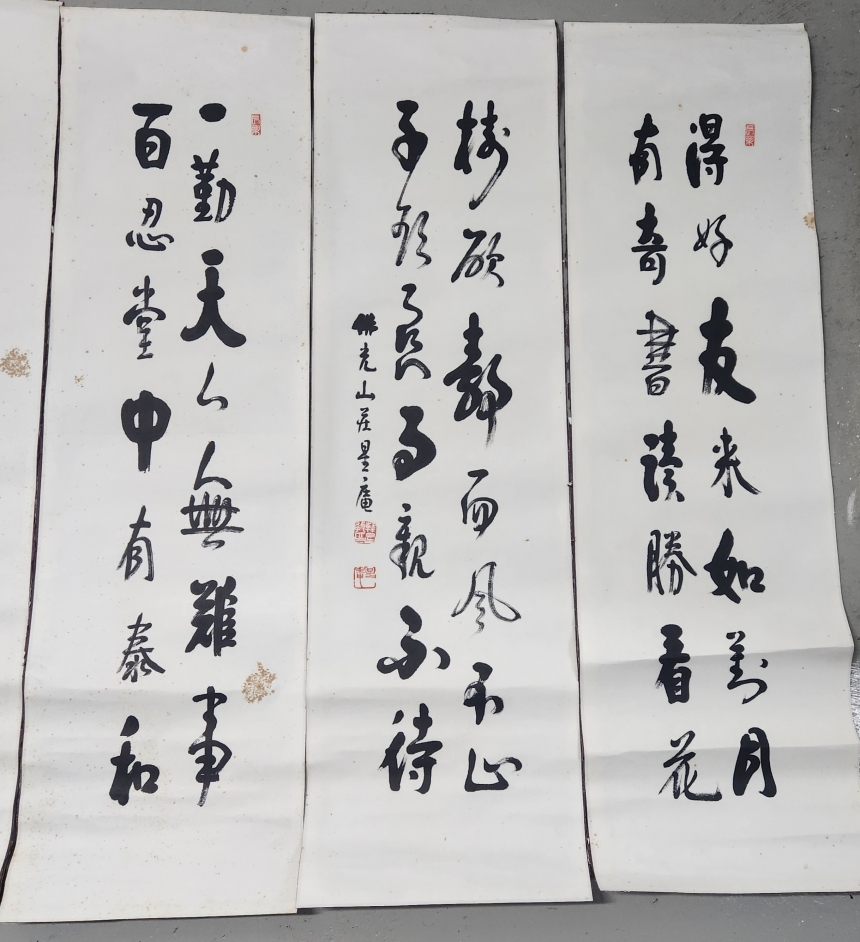 得好友来如對月
有奇書讀勝看花
樹欲靜而風不止
子欲養而親不待
佛光山莊星庵
一勤天下無難事
百忍堂中有泰和